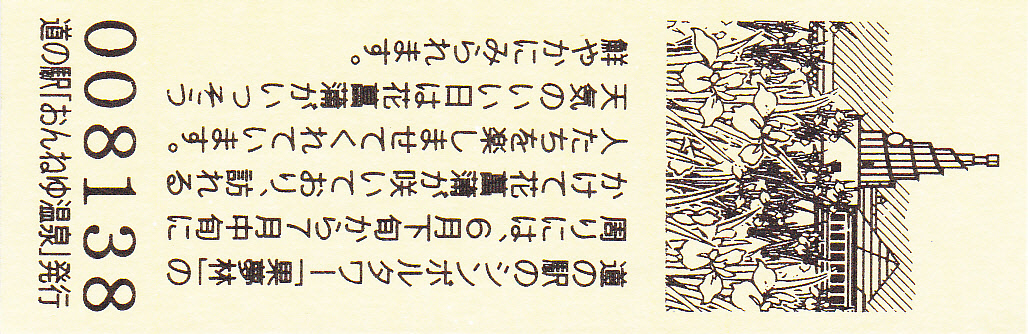 道の駅のシンボルタワー「果夢林」の
周りには、6月下旬から7月中旬に
かけて花菖蒲が咲いており、訪れる
人たちを楽しませてくれています。
天気のいい日は花菖蒲がいっそう
鮮やかにみられます。
008138
道の駅「おんねゆ温泉」発行